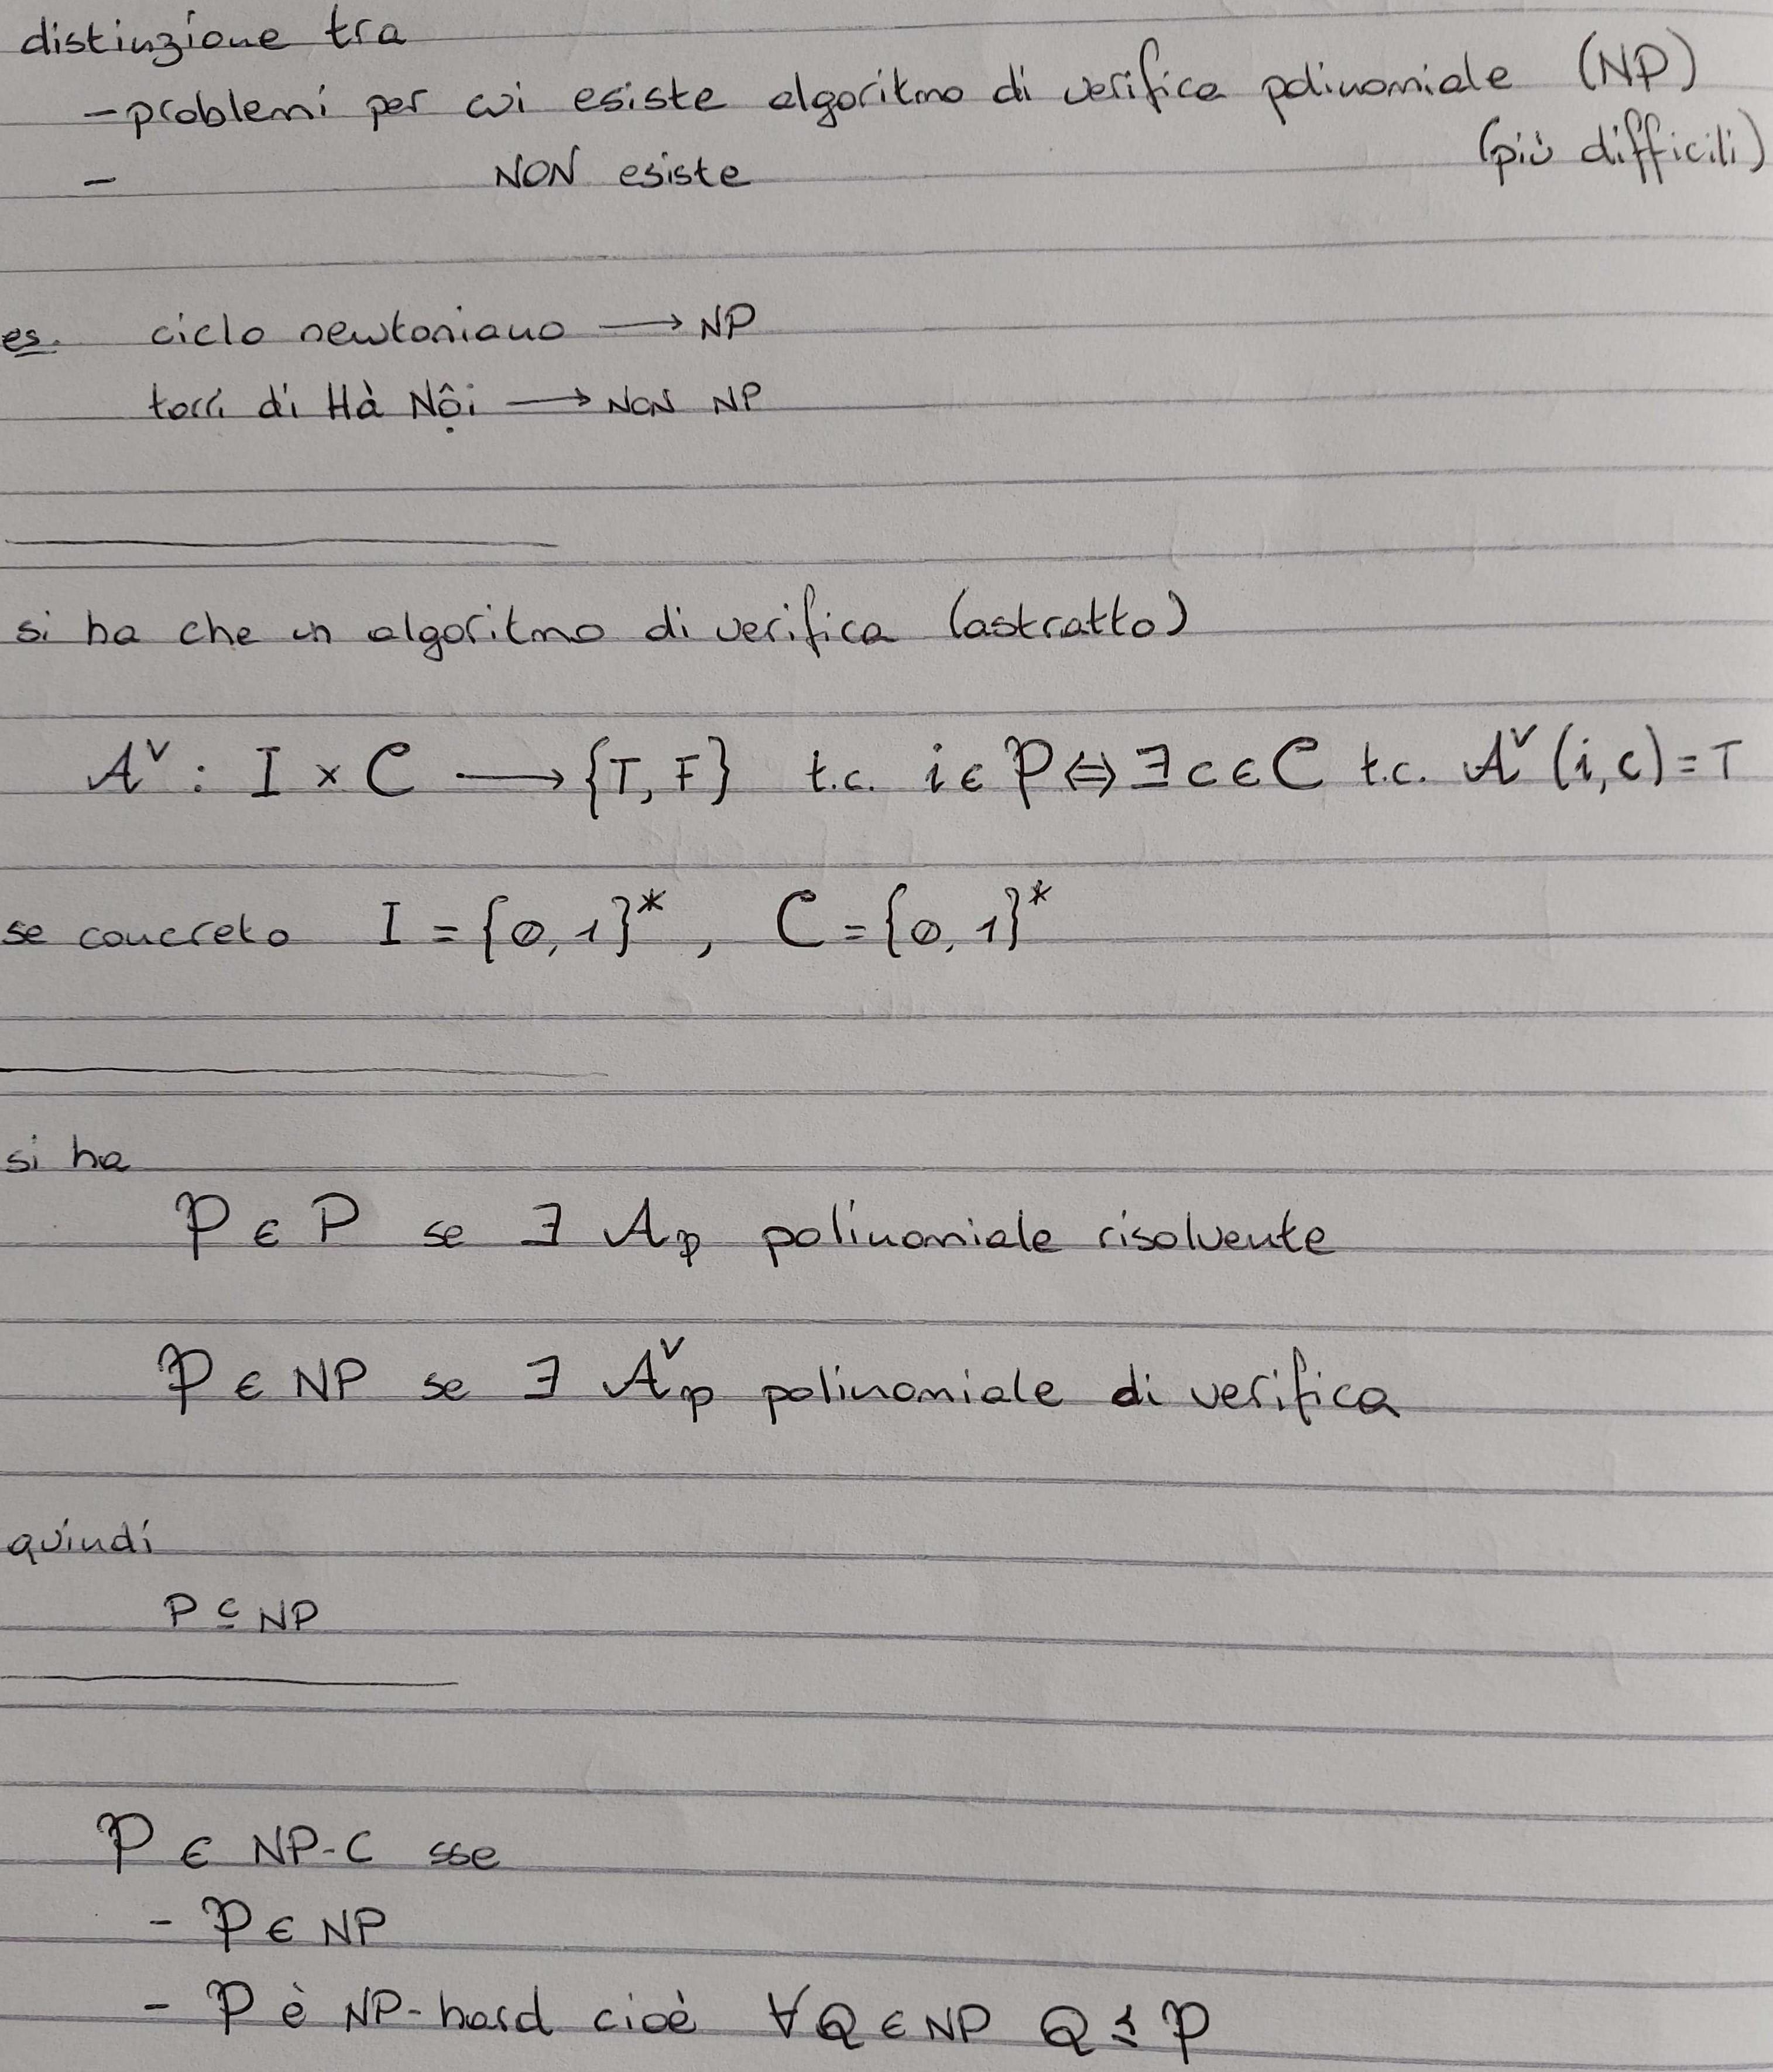 distinzione tra
- problemi per cui esiste algoritmo di verifica polinomiale (NP)
- NON esiste (più difficili)
es. ciclo newtoniano ⟶ NP
torri di Hà Nội ⟶ NON NP
si ha che un algoritmo di verifica (astratto)
𝒜ᵛ : I × C ⟶ {T, F} t.c. i ∈ 𝒫 ⇔ ∃ c ∈ C t.c. 𝒜ᵛ(i, c) = T
se concreto I = {0, 1}*, C = {0, 1}*
si ha
𝒫 ∈ P se ∃ 𝒜_𝒫 polinomiale risolvente
𝒫 ∈ NP se ∃ 𝒜ᵛ_𝒫 polinomiale di verifica
quindi
P ⊆ NP
𝒫 ∈ NP-C sse
- 𝒫 ∈ NP
- 𝒫 è NP-hard cioè ∀ Q ∈ NP Q ≼ 𝒫